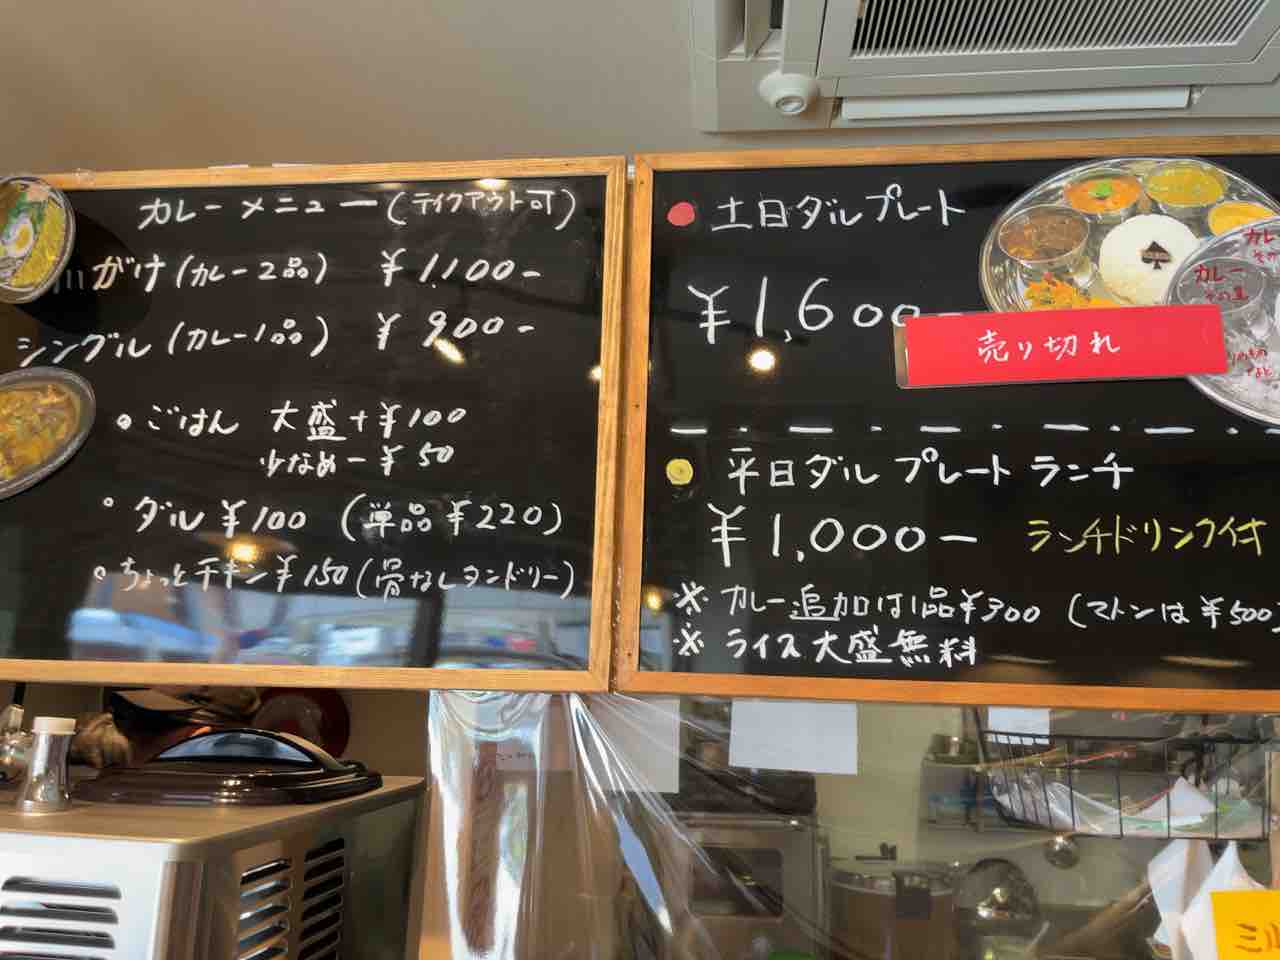 カレーメニュー(テイクアウト可)
がけ(カレー2品) ¥1,100-
シングル(カレー1品) ¥900-
ごはん 大盛+¥100
少なめ-¥50
ダル¥100 (単品¥220)
ちょっとチキン¥150(骨なしタンドリー)
土日ダルプレート
¥1,600-
売り切れ
カレー
その
平日ダルプレートランチ
¥1,000- ランチドリンク付
※カレー追加は1品¥300 (マトンは¥500
※ライス大盛無料